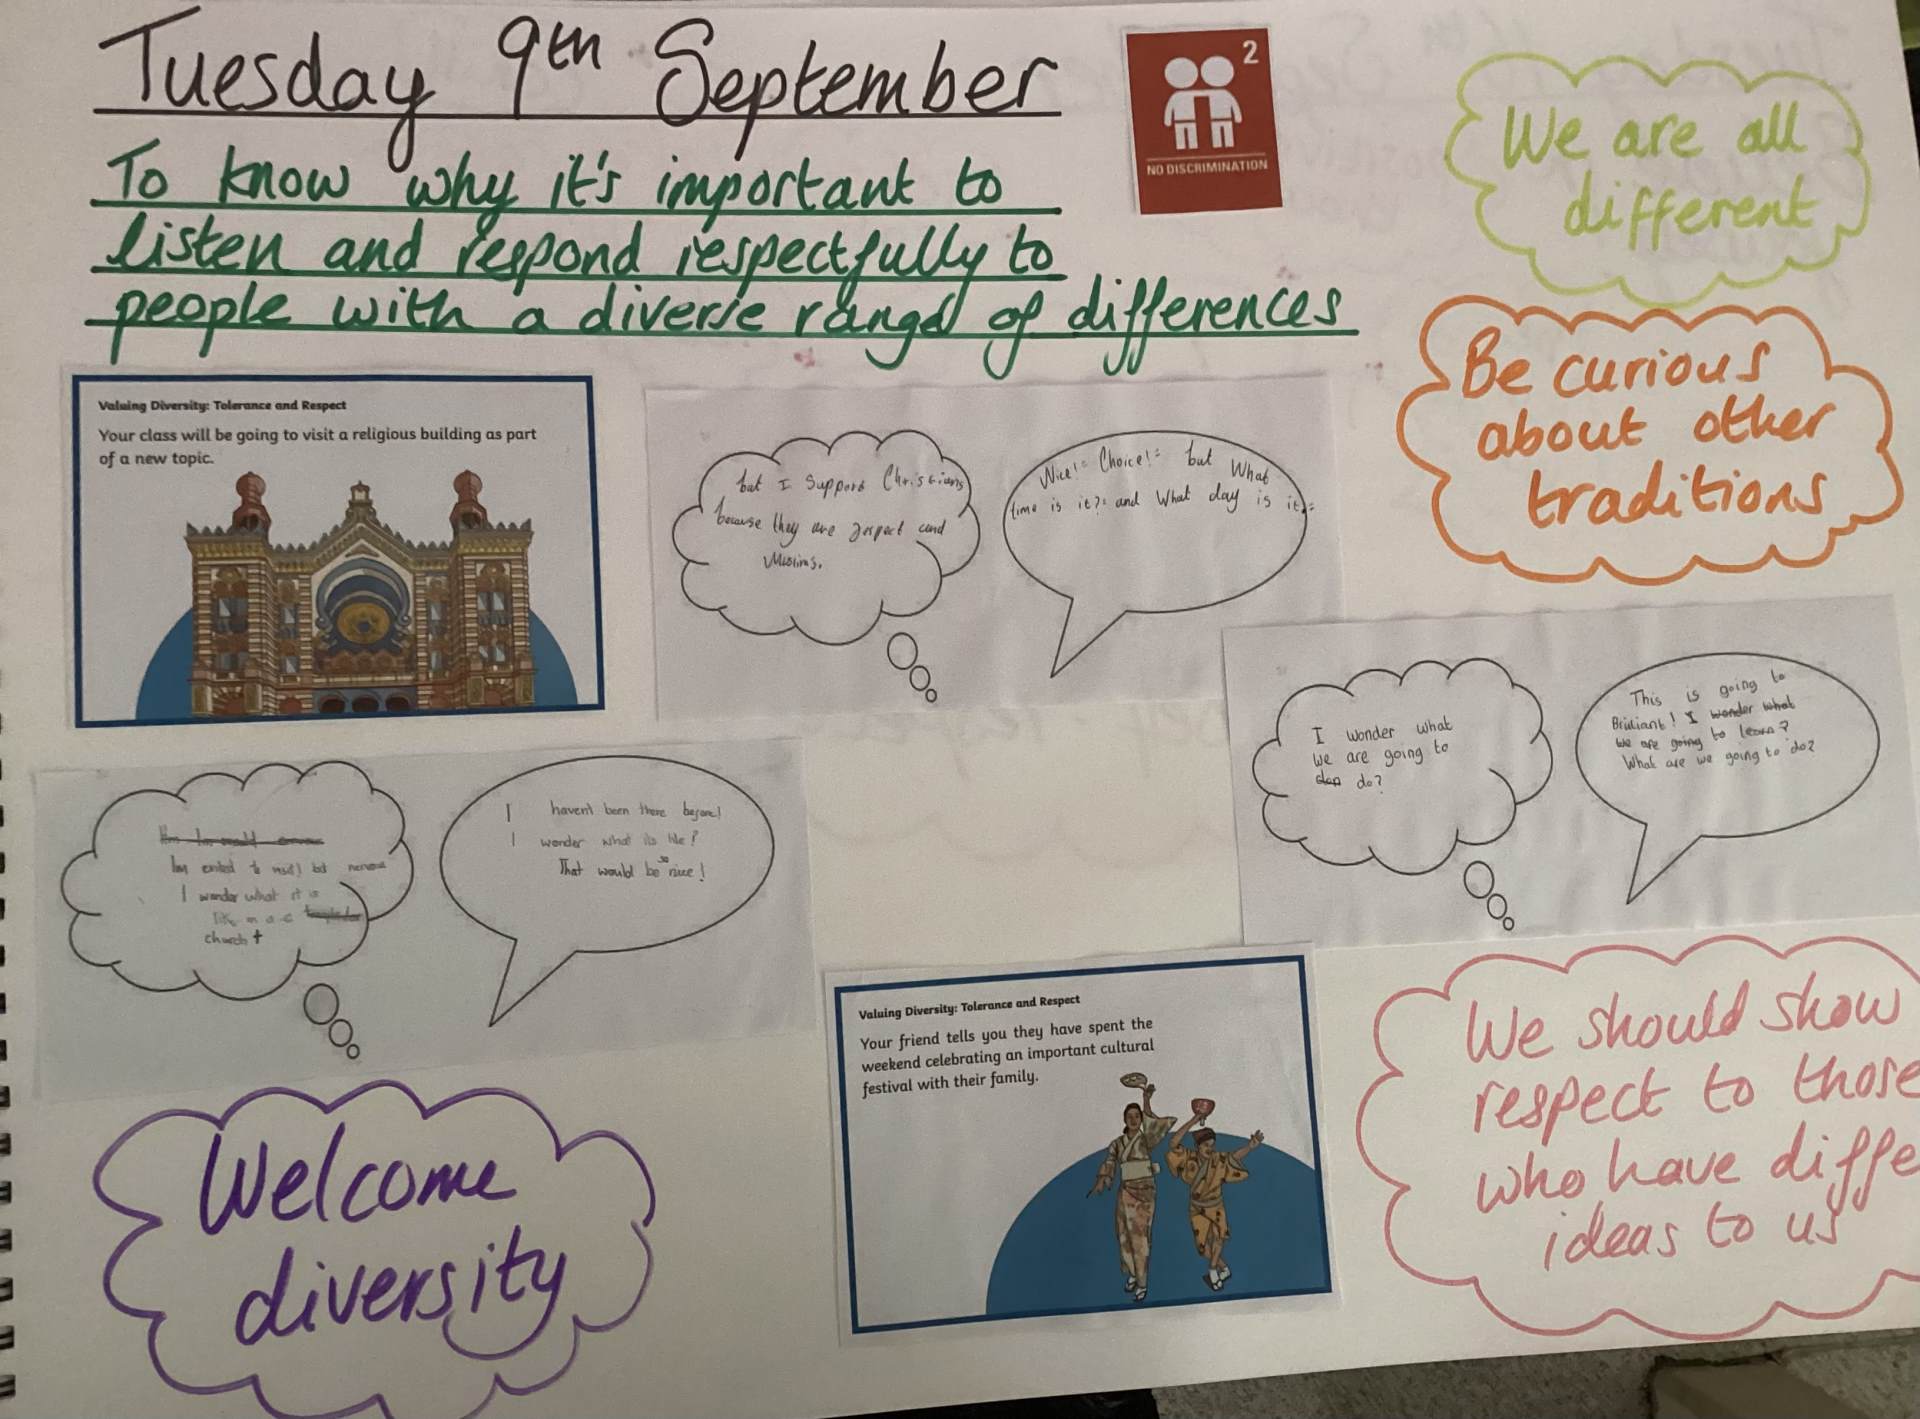 Tuesday 9th September
To know why it's important to
listen and respond respectfully to
people with a diverse range of differences
2
NO DISCRIMINATION
We are all
different
Be curious
about other
traditions
Valuing Diversity: Tolerance and Respect
Your class will be going to visit a religious building as part
of a new topic.
but I support Christians
because they are respect and
Muslims.
Nice! Choice! but What
time is it? and What day is it
I wonder what
we are going to
do?
This is going to
Briliant! I wonder what
we are going to learn?
What are we going to do?
Im excited to visit! but nervous
I wonder what it is
like in a
church
I haven't been there before!
I wonder what its like?
That would be so nice!
Valuing Diversity: Tolerance and Respect
Your friend tells you they have spent the
weekend celebrating an important cultural
festival with their family.
Welcome
diversity
We should show
respect to those
who have diffe
ideas to us